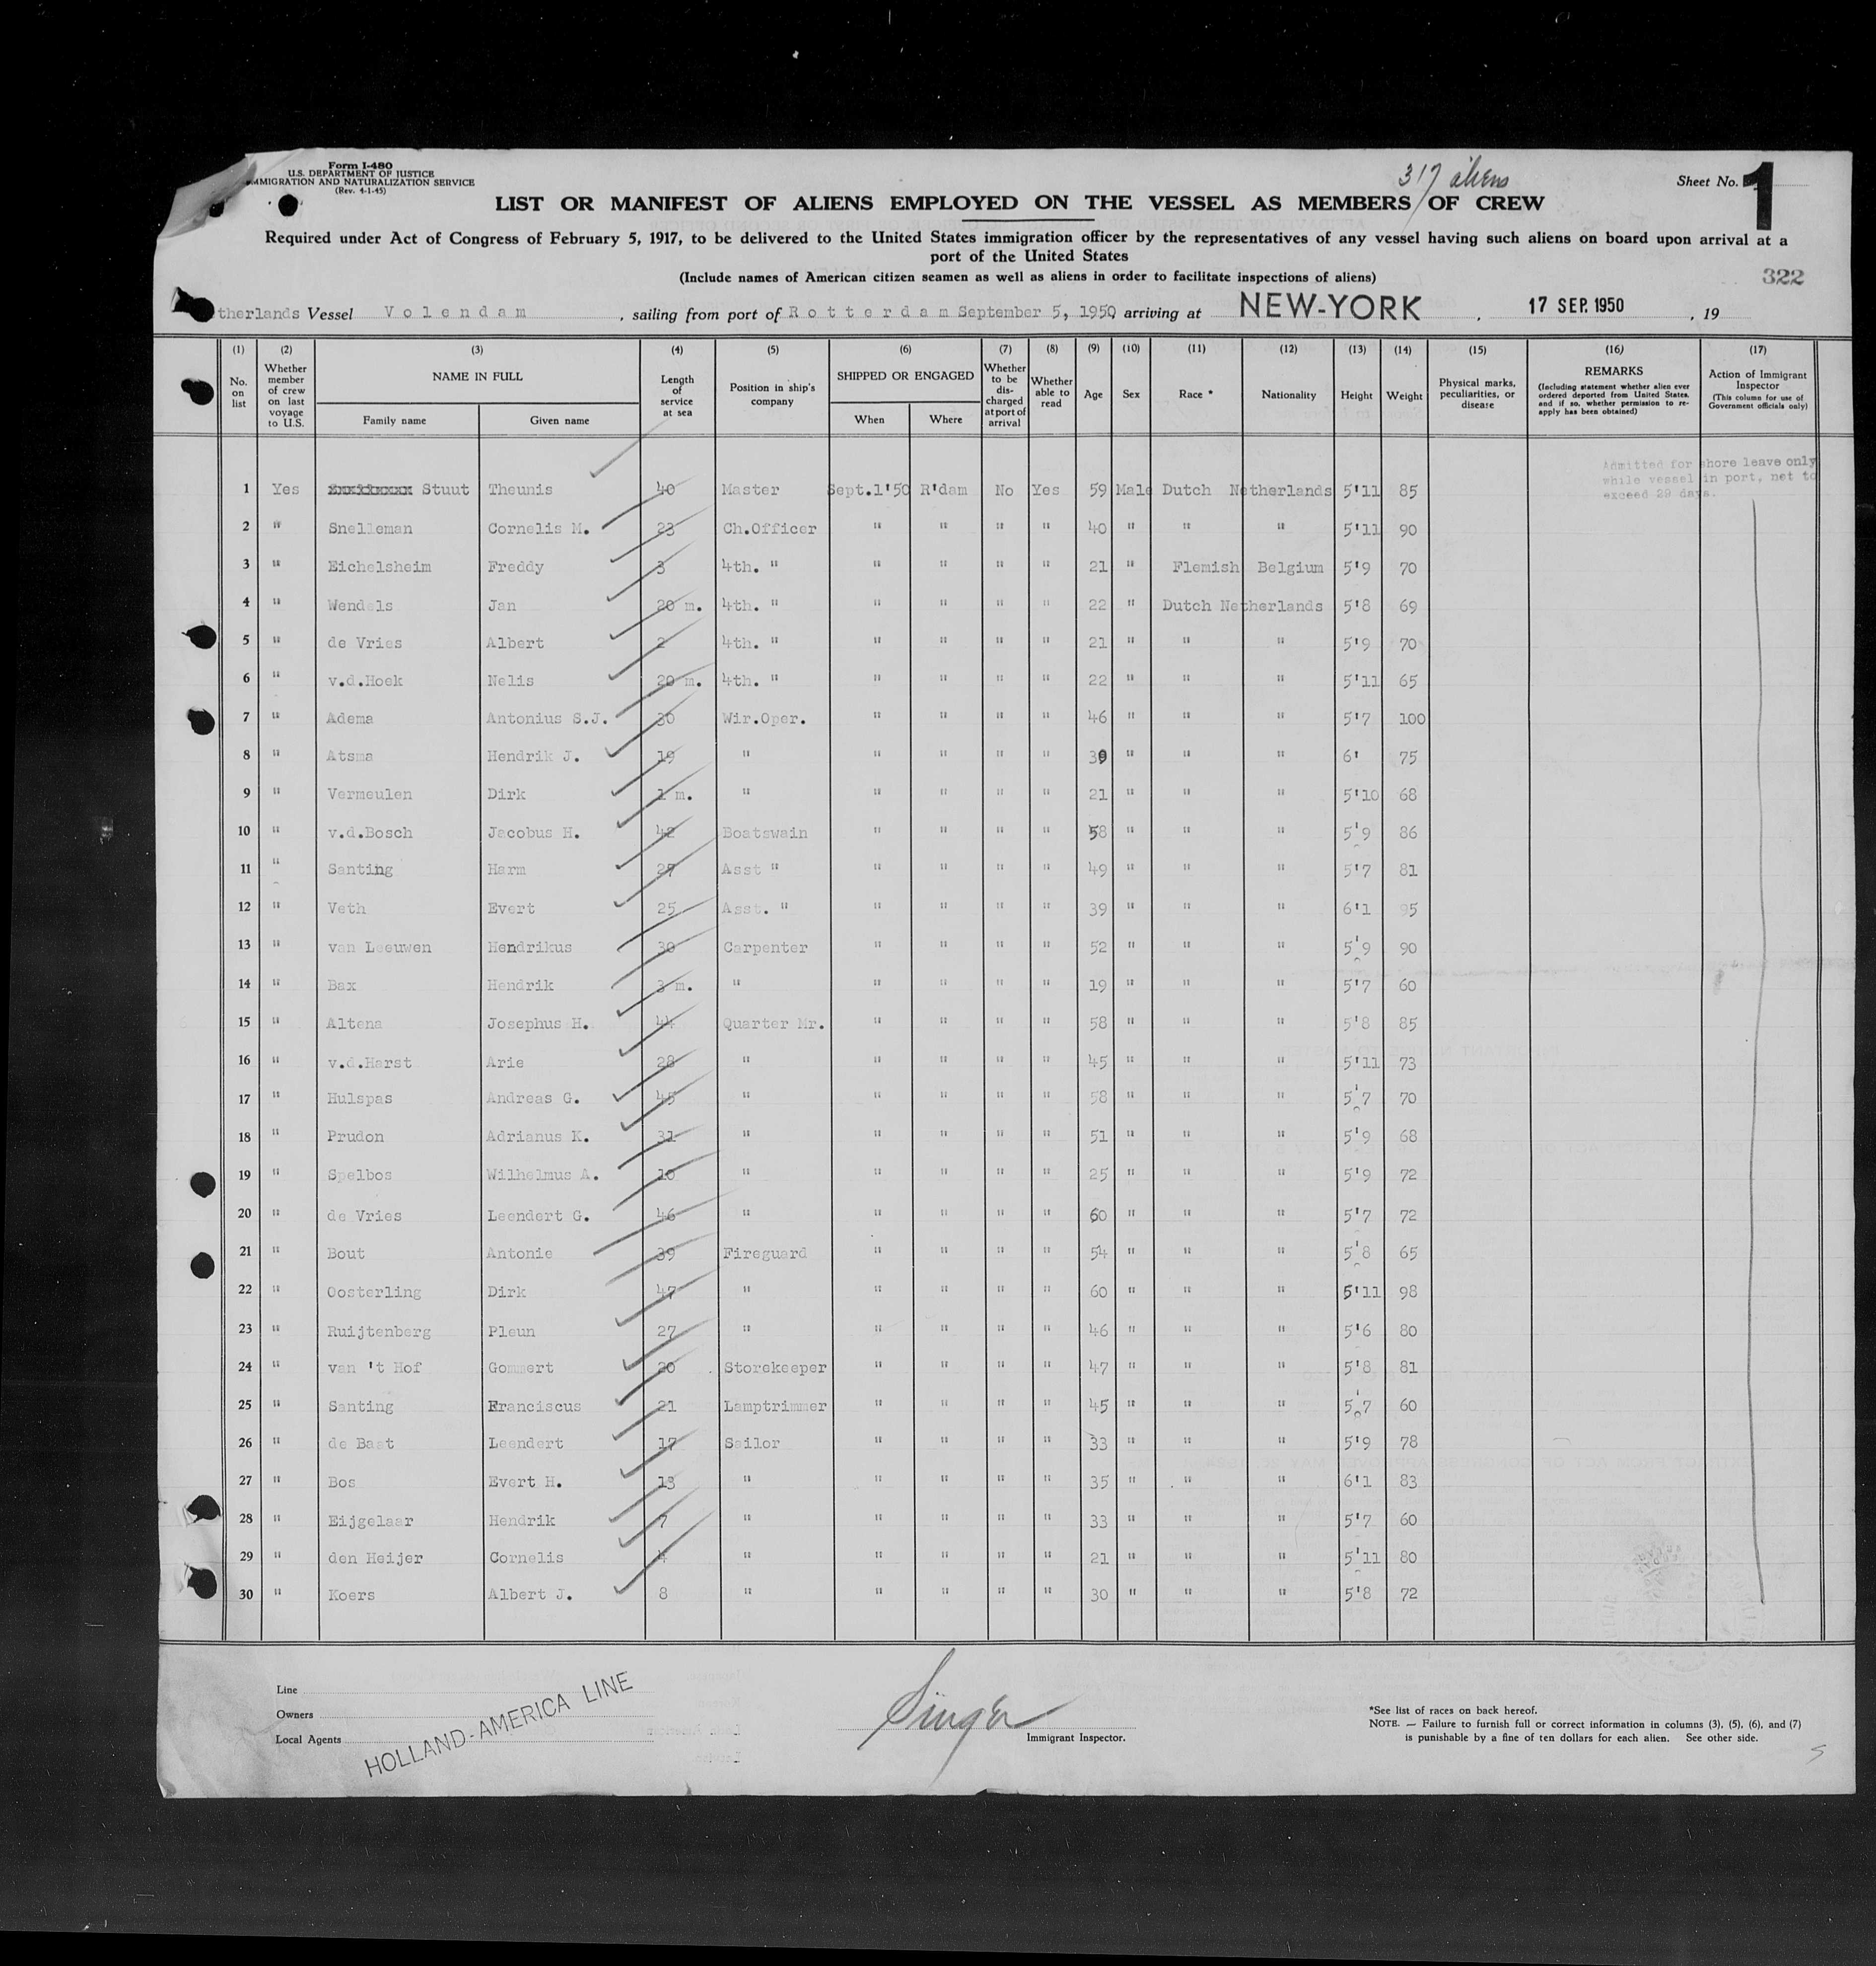 Form I-480
U.S. DEPARTMENT OF JUSTICE
IMMIGRATION AND NATURALIZATION SERVICE
(Rev. 4-1-45)
317 aliens
Sheet No. 1
LIST OR MANIFEST OF ALIENS EMPLOYED ON THE VESSEL AS MEMBERS OF CREW
Required under Act of Congress of February 5, 1917, to be delivered to the United States immigration officer by the representatives of any vessel having such aliens on board upon arrival at a
port of the United States
(Include names of American citizen seamen as well as aliens in order to facilitate inspections of aliens)
322
therlands Vessel Volendam , sailing from port of Rotterdam September 5, 1950 arriving at NEW-YORK , 17 SEP. 1950 , 19
(1) (2) (3) (4) (5) (6) (7) (8) (9) (10) (11) (12) (13) (14) (15) (16) (17)
No. on list Whether member of crew on last voyage to U.S. NAME IN FULL Family name Given name Length of service at sea Position in ship's company SHIPPED OR ENGAGED When Where Whether to be discharged at port of arrival Whether able to read Age Sex Race * Nationality Height Weight Physical marks, peculiarities, or disease REMARKS (Including statement whether alien ever ordered deported from United States, and if so, whether permission to re-apply has been obtained) Action of Immigrant Inspector (This column for use of Government officials only)
Admitted for shore leave only
while vessel in port, not to
exceed 29 days.
1 Yes Stuut Theunis 40 Master Sept.1'50 R'dam No Yes 59 Male Dutch Netherlands 5'11 85
2 " Snelleman Cornelis M. 23 Ch.Officer " " " " 40 " " " 5'11 90
3 " Eichelsheim Freddy 3 4th. " " " " " 21 " Flemish Belgium 5'9 70
4 " Wendels Jan 20 m. 4th. " " " " " 22 " Dutch Netherlands 5'8 69
5 " de Vries Albert 2 4th. " " " " " 21 " " " 5'9 70
6 " v.d.Hoek Nelis 20 m. 4th. " " " " " 22 " " " 5'11 65
7 " Adema Antonius S.J. 30 Wir.Oper. " " " " 46 " " " 5'7 100
8 " Atsma Hendrik J. 19 " " " " " 39 " " " 6' 75
9 " Vermeulen Dirk 1 m. " " " " " 21 " " " 5'10 68
10 " v.d.Bosch Jacobus H. 42 Boatswain " " " " 58 " " " 5'9 86
11 " Santing Harm 27 Asst " " " " " 49 " " " 5'7 81
12 " Veth Evert 25 Asst. " " " " " 39 " " " 6'1 95
13 " van Leeuwen Hendrikus 30 Carpenter " " " " 52 " " " 5'9 90
14 " Bax Hendrik 3 m. " " " " " 19 " " " 5'7 60
15 " Altena Josephus H. 44 Quarter Mr. " " " " 58 " " " 5'8 85
16 " v.d.Harst Arie 28 " " " " " 45 " " " 5'11 73
17 " Hulspas Andreas G. 45 " " " " " 58 " " " 5'7 70
18 " Prudon Adrianus K. 31 " " " " " 51 " " " 5'9 68
19 " Spelbos Wilhelmus A. 10 " " " " " 25 " " " 5'9 72
20 " de Vries Leendert G. 46 " " " " " 60 " " " 5'7 72
21 " Bout Antonie 39 Fireguard " " " " 54 " " " 5'8 65
22 " Oosterling Dirk 47 " " " " " 60 " " " 5'11 98
23 " Ruijtenberg Pleun 27 " " " " " 46 " " " 5'6 80
24 " van 't Hof Gommert 20 Storekeeper " " " " 47 " " " 5'8 81
25 " Santing Franciscus 21 Lamptrimmer " " " " 45 " " " 5'7 60
26 " de Bast Leendert 17 Sailor " " " " 33 " " " 5'9 78
27 " Bos Evert H. 13 " " " " " 35 " " " 6'1 83
28 " Eijgelaar Hendrik 7 " " " " " 33 " " " 5'7 60
29 " den Heijer Cornelis 4 " " " " " 21 " " " 5'11 80
30 " Koers Albert J. 8 " " " " " 30 " " " 5'8 72
Line
Owners
Local Agents
HOLLAND-AMERICA LINE
Singer
Immigrant Inspector.
*See list of races on back hereof.
NOTE. — Failure to furnish full or correct information in columns (3), (5), (6), and (7)
is punishable by a fine of ten dollars for each alien. See other side.